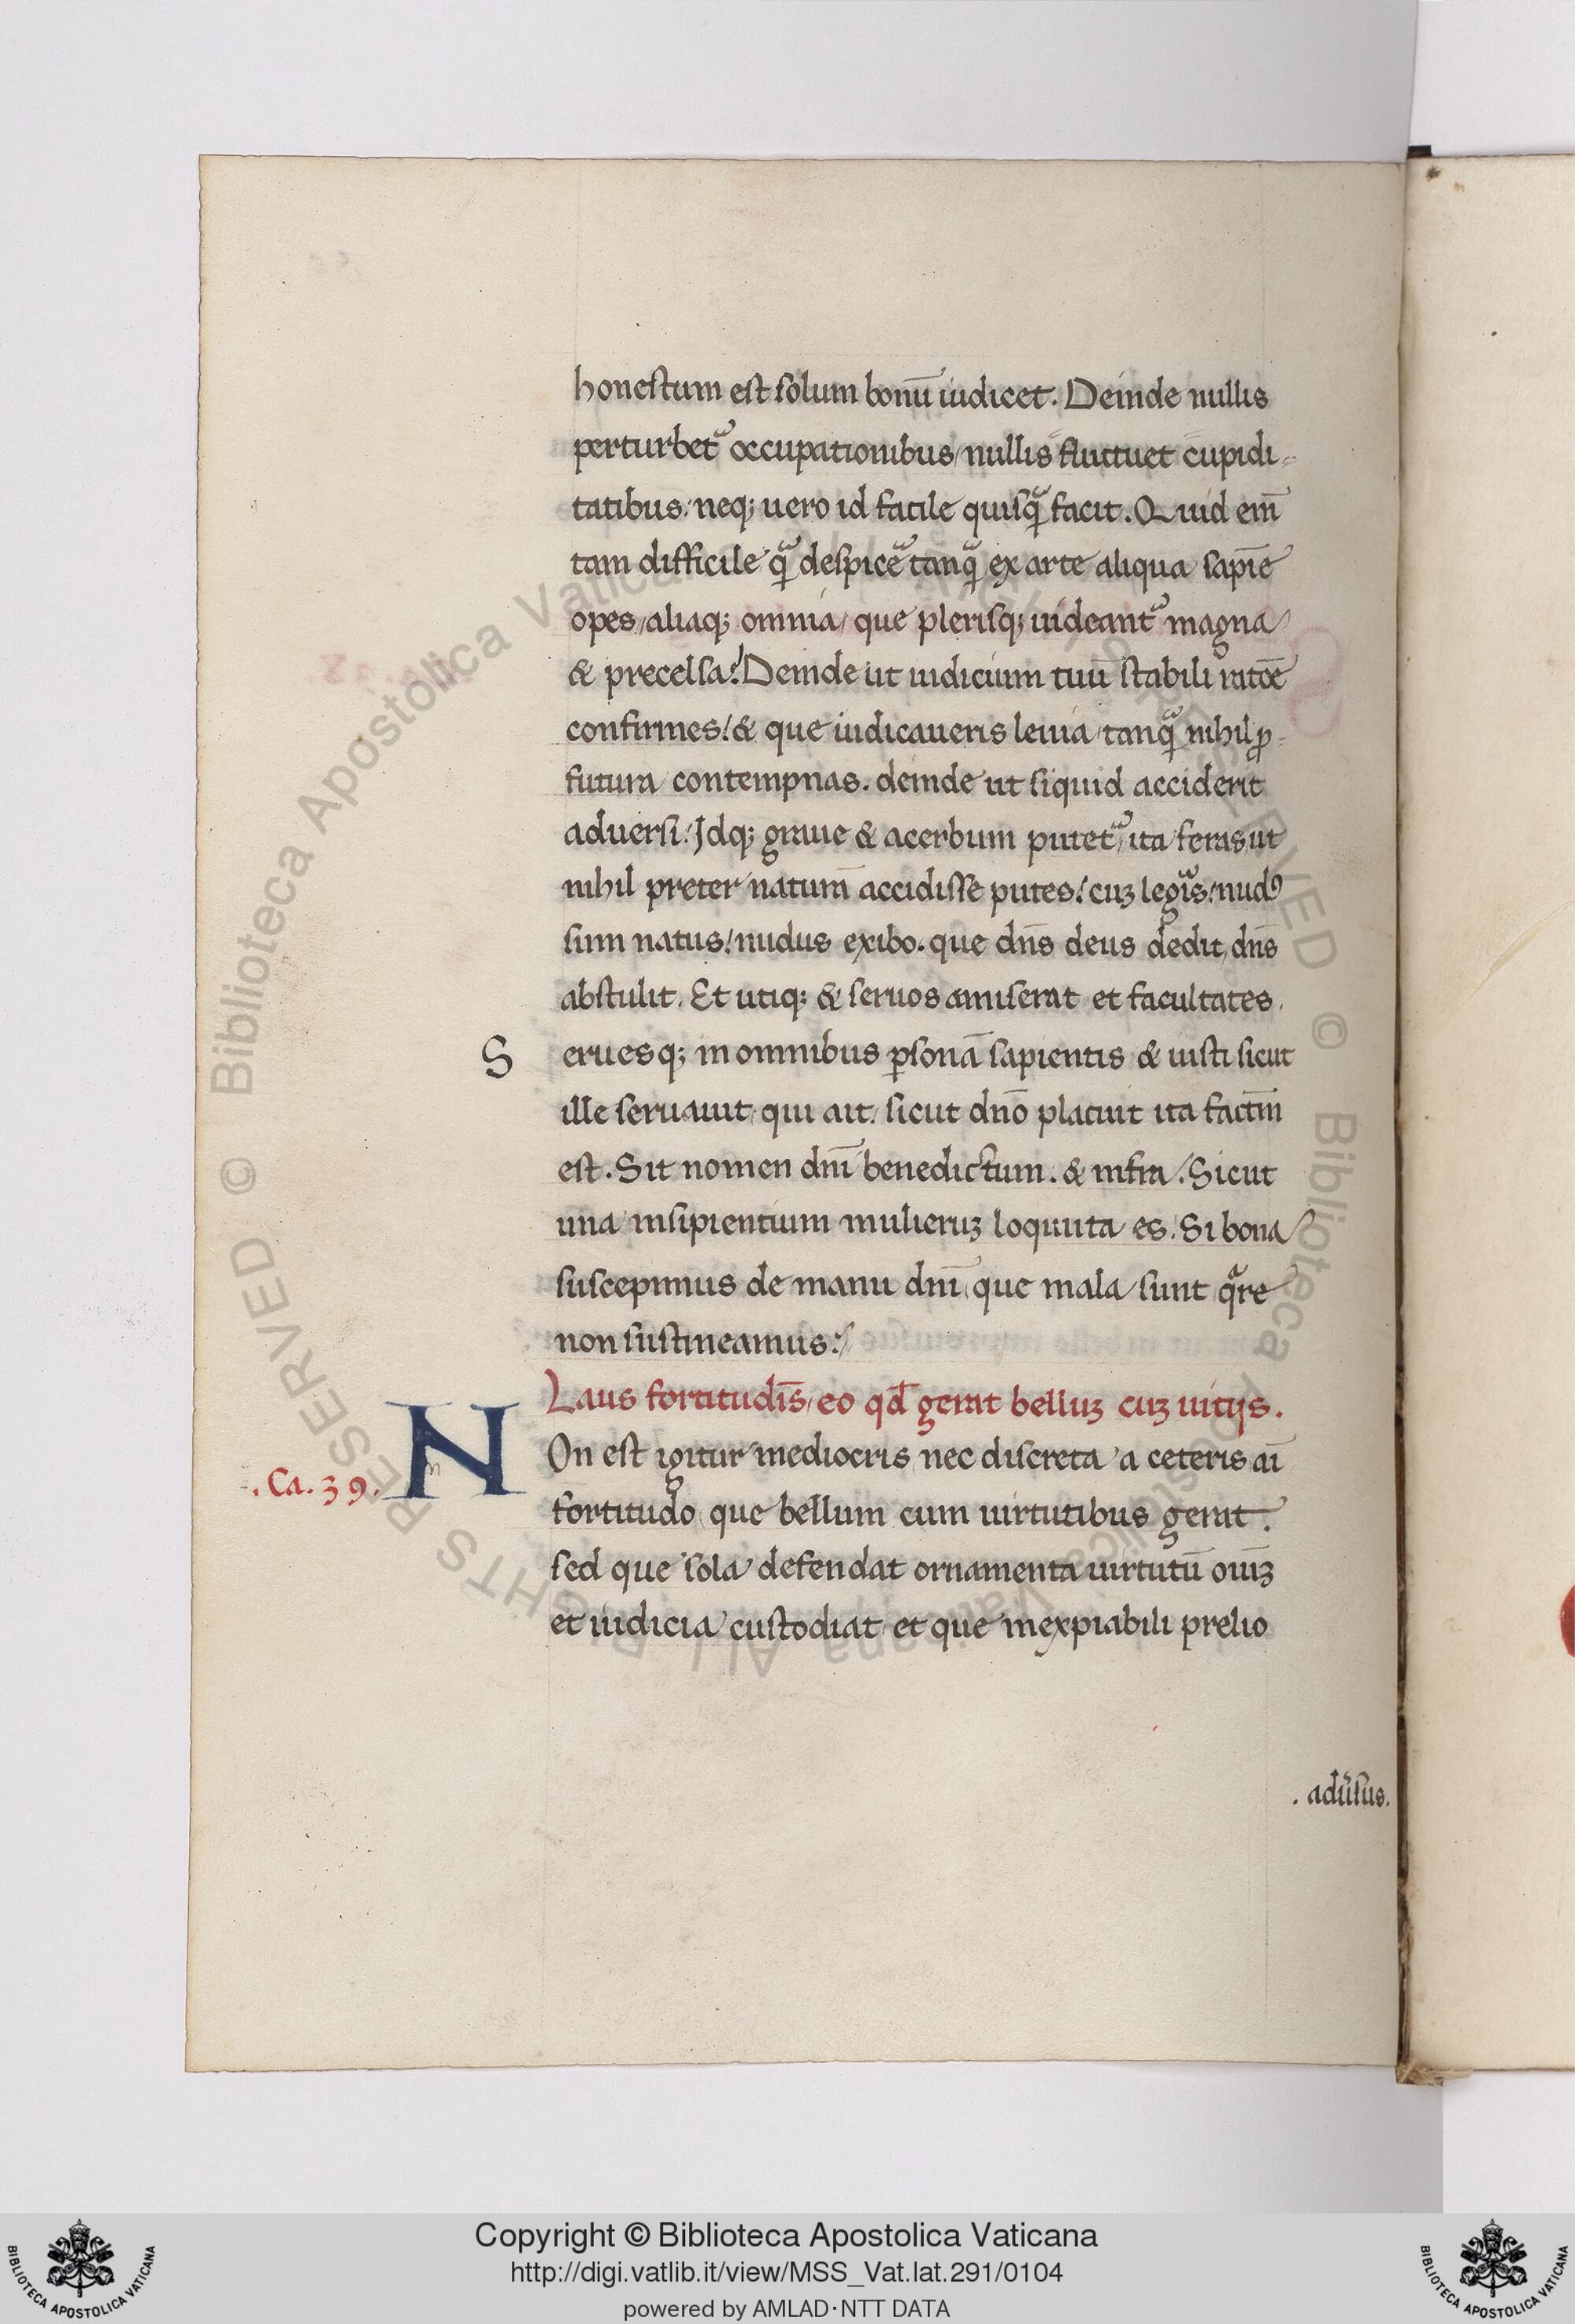 honestum est solum bonū iudicet. Deinde nullis
perturbet᷑ occupationibus, nullis fluctuet cupidi-
tatibus, neq; uero id facile quisq̃ facit. Quid em̄
tam difficile q̃ despice᷑ tanq̃ ex arte aliqua sapīe
opes, aliaq; omnia, que plerisq; uideant᷑ magna
& precelsa? Deinde ut iudicium tuū stabili ratōe
confirmes! & que iudicaueris leuia, tanq̃ nihil ꝓ-
futura contempnas. deinde ut siquid acciderit
aduersi! Idq; graue & acerbum putet᷑, ita feras, ut
nihil preter natum̄ accidisse putes! cuʒ legis᷑! nudꝰ
sum natus! nudus exibo. que dn̄s deus dedit, dn̄s
abstulit. Et utiq; & seruos amiserat et facultates.
S eruesq; in omnibus ꝑsonā sapientis & iusti sicut
ille seruauit, qui ait, sicut dn̄o placuit ita factm̄
est. Sit nomen dn̄i benedictum. & infra, Sicut
una insipientium mulieruʒ loquuta es. Si bona
suscepimus de manu dn̄i, que mala sunt q̃re
non sustineamus?
Laus fortitudīs, eo qd̄ gerat belluʒ cuʒ uitijs.
.Ca.39.
N On est igitur mediocris nec discreta a ceteris aī
fortitudo, que bellum cum uirtutibus gerat.
sed que sola defendat ornamenta uirtutū oīuʒ
et iudicia custodiat, et que inexpiabili prelio
. adūsus.
© Biblioteca Apostolica Vaticana ALL RIGHTS RESERVED
© Biblioteca Apostolica Vaticana ALL RIGHTS RESERVED
Copyright © Biblioteca Apostolica Vaticana
http://digi.vatlib.it/view/MSS_Vat.lat.291/0104
powered by AMLAD·NTT DATA
BIBLIOTECA APOSTOLICA VATICANA
BIBLIOTECA APOSTOLICA VATICANA